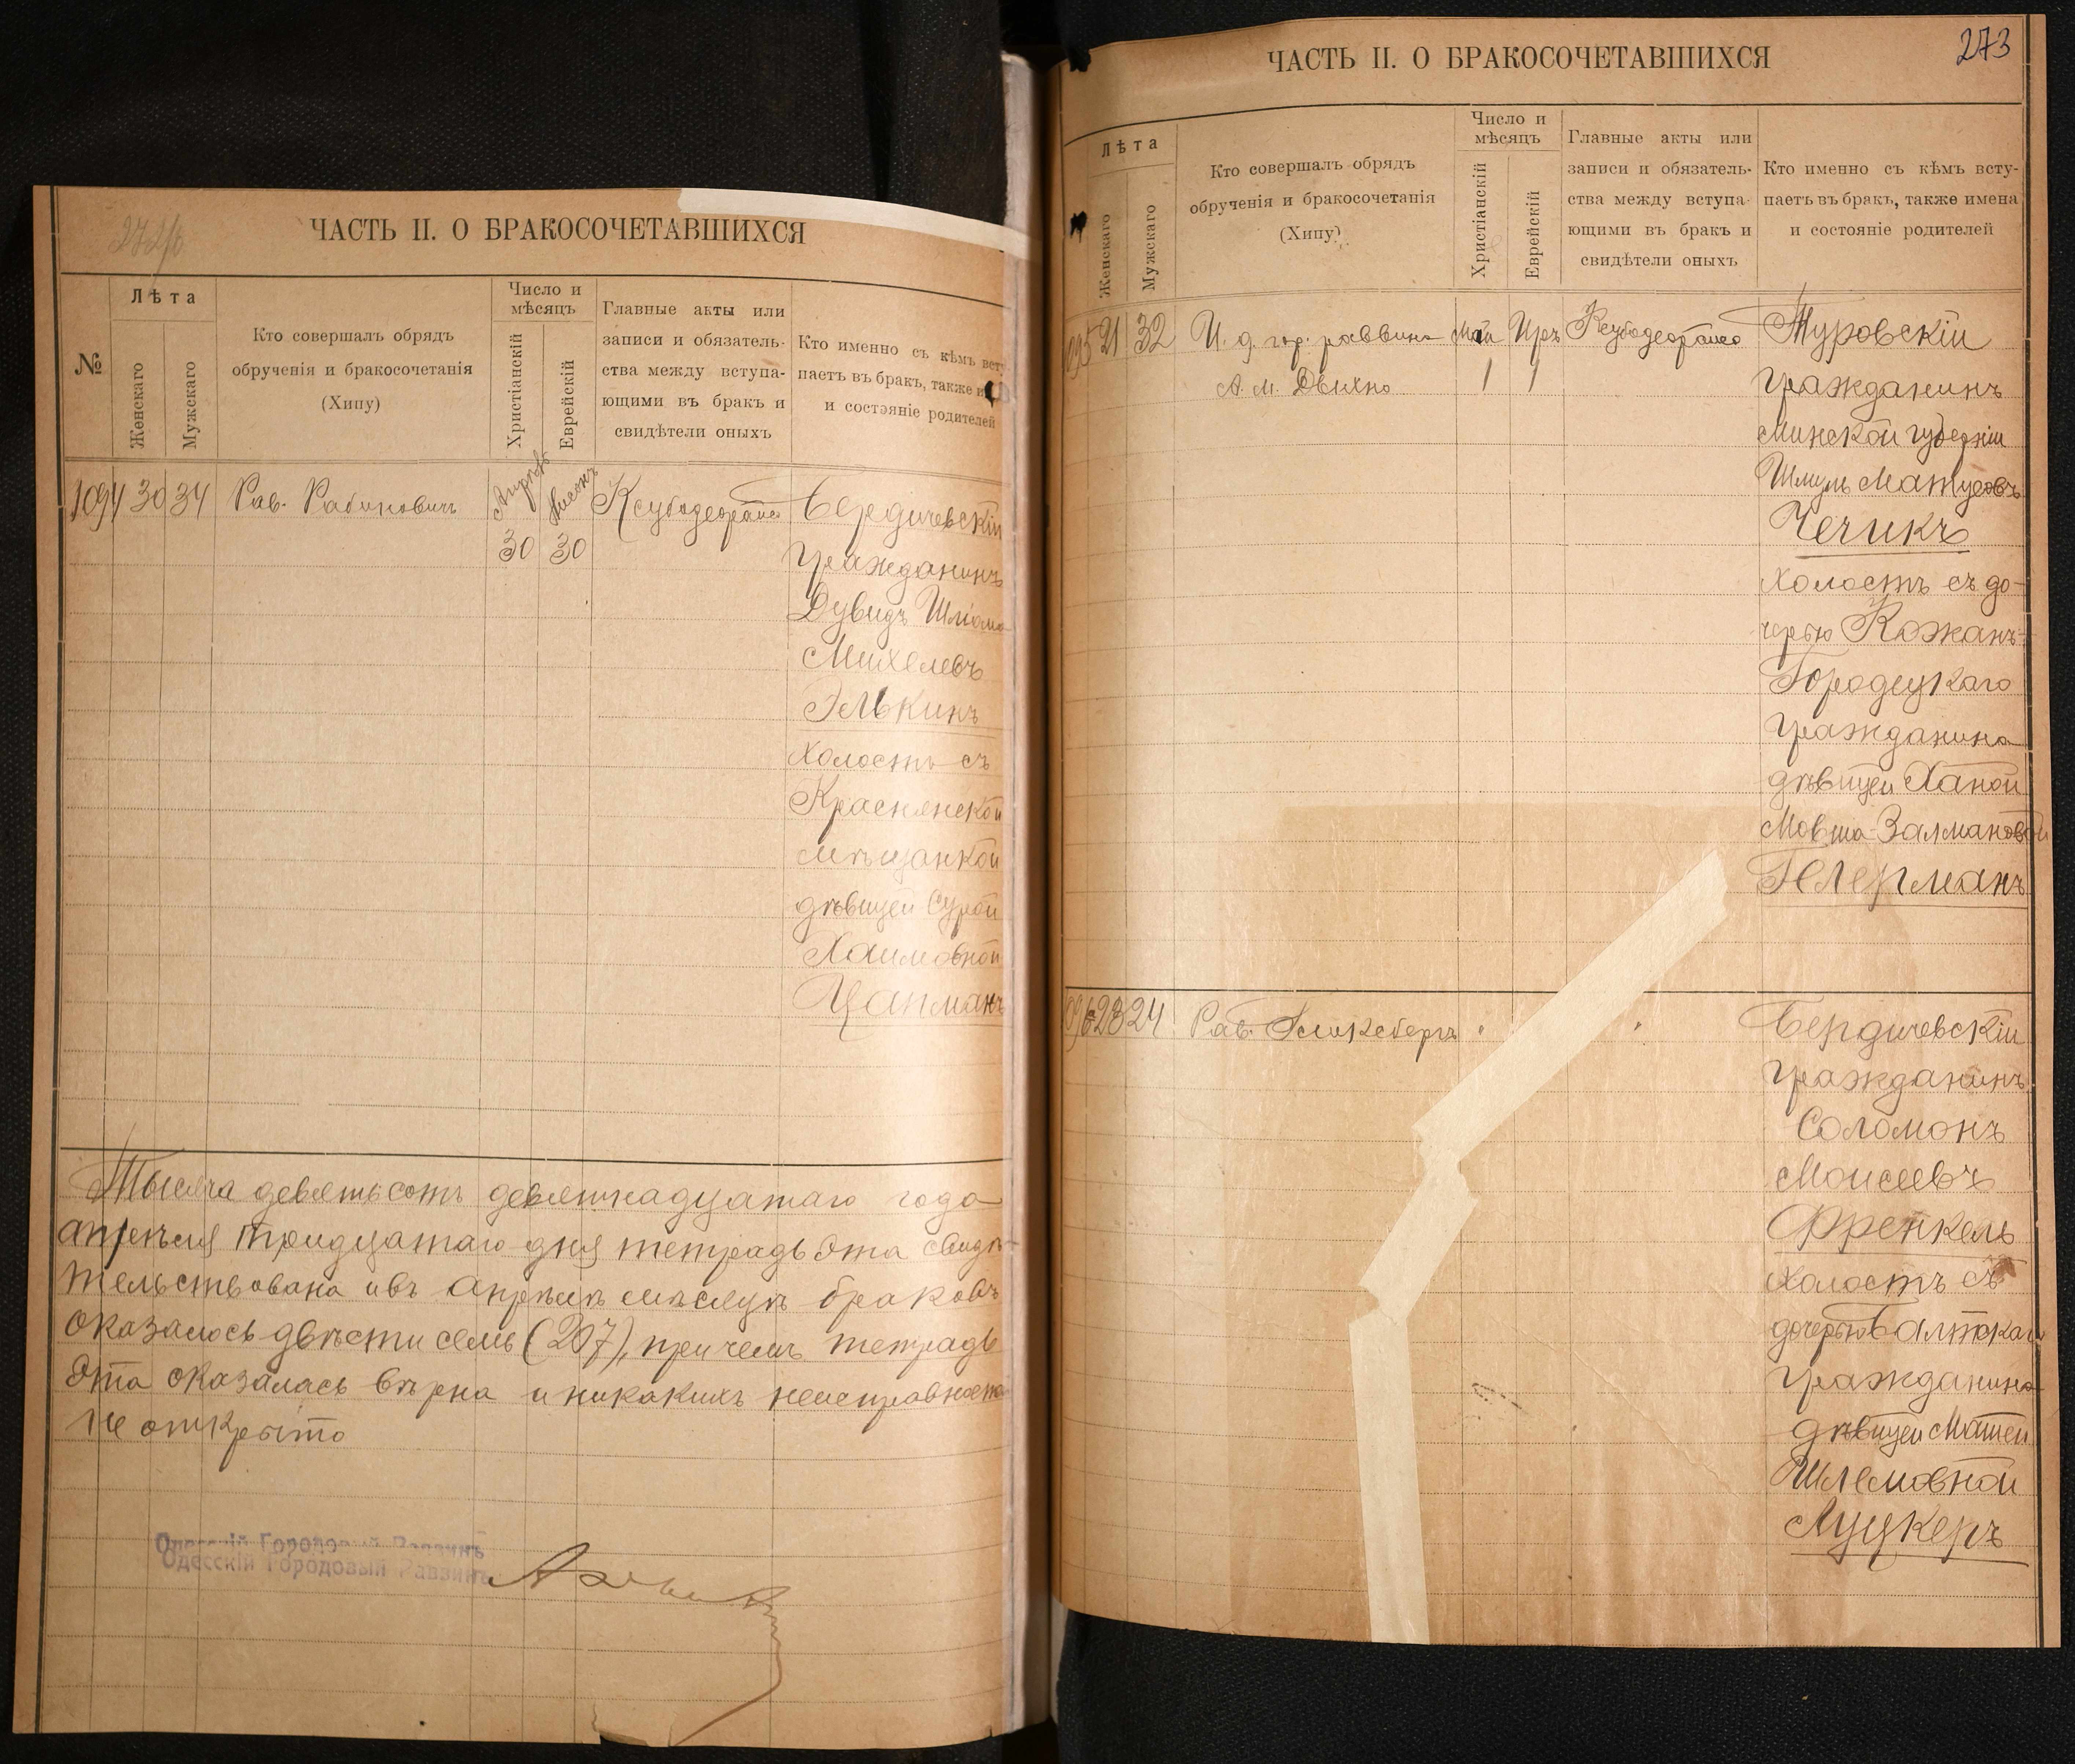 ЧАСТЬ II. О БРАКОСОЧЕТАВШИХСЯ
№
Лѣта
Женскаго
Мужскаго
Кто совершалъ обрядъ
обрученія и бракосочетанія
(Хипу)
Число и
мѣсяцъ
Христіанскій
Еврейскій
Главные акты или
записи и обязатель-
ства между вступа-
ющими въ бракъ и
свидѣтели оныхъ
Кто именно съ кѣмъ всту
паетъ въ бракъ, также и
и состояніе родителей
1094 30 34 Рав. Рабиновичъ
30 30
Бердичевскій
Гражданинъ
Дувидъ Шліома
Михелевъ
Элькинъ
Холостъ съ
Краснянской
мѣщанкой
дѣвицей Сурой
Хаимовной
Цапманъ
Тысяча девятьсотъ девятнадцатаго года
апрѣля тридцатаго дня тетрадь эта свидѣ-
тельствована и въ апрѣлѣ мѣсяцѣ браковъ
оказалось двѣсти семь (207), при чемъ тетрадь
эта оказалась вѣрна и никакихъ неисправносте
не открыто
Одесскій Городовый Раввинъ
Одесскій Городовый Раввинъ
ЧАСТЬ II. О БРАКОСОЧЕТАВШИХСЯ
273
Лѣта
Женскаго
Мужскаго
Кто совершалъ обрядъ
обрученія и бракосочетанія
(Хипу)
Число и
мѣсяцъ
Христіанскій
Еврейскій
Главные акты или
записи и обязатель-
ства между вступа-
ющими въ бракъ и
свидѣтели оныхъ
Кто именно съ кѣмъ всту-
паетъ въ бракъ, также имена
и состояніе родителей
095 21 32 И. д. гор. раввина Май Иръ
А. М. Двихно 1 1
Туровскій
Гражданинъ
Минской губерніи
Шмуль Матусовъ
Чечикъ
Холостъ съ до-
черью Кожанъ-
Городецкаго
Гражданина
дѣвицей Ханой
Мовша-Залмановой
Гелерманъ
096 23 24 Рав. Гликсбергъ
Бердичевскій
Гражданинъ
Соломонъ
Моисеевъ
Френкель
Холостъ съ
дочерью Балтскаго
Гражданина
дѣвицей Матей
Шлемовной
Луцкеръ